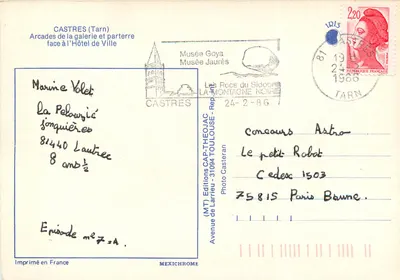 CASTRES (Tarn)
Arcades de la galerie et parterre
face à l'Hôtel de Ville
Musée Goya
Musée Jaurès
Les Rocs du Sidobre
LA MONTAGNE NOIRE
CASTRES
24-2-86
IRIS
2,20
81
19 H
24-2
1986
TARN
Marine Volet
La Pelouzié
jonquières
81440 Lautrec
8 ans ½
Episode n° 7 A
(MT) Editions CAP-THEOJAC
Avenue de Larrieu - 31094 TOULOUSE -
Photo Casteran
concours Astro
Le petit Robot
Cedex 1503
75815 Paris Brune.
Imprimé en France
MEXICHROME